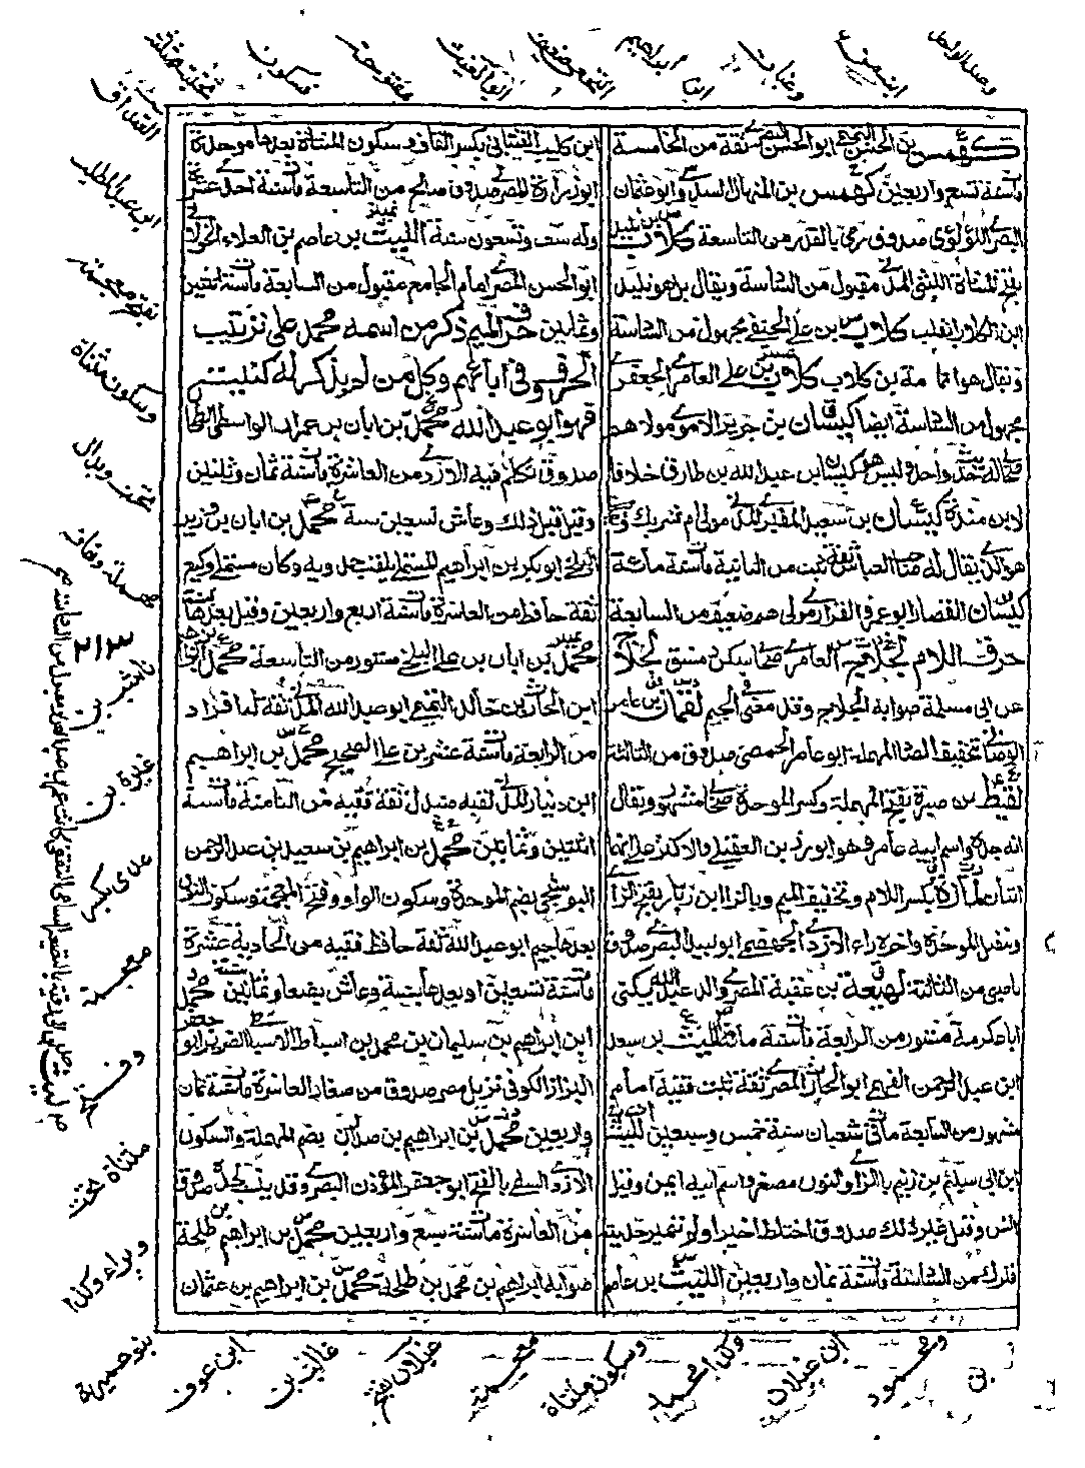 كهمس بن الحسن التميمي ابو الحسن البصري ثقة من الخامسة
مات سنة تسع واربعين كهمس بن المنهال السدوسي ابو عثمان
البصري اللؤلؤي صدوق رمي بالقدر من التاسعة كلاب بن تليد
بفتح المثناة الليثي المدني مقبول من السادسة ويقال بل هو تليد
ابن كلاب انقلب كلاب بن علي الحنفي مجهول من السادسة
ويقال هو ثمامة بن كلاب كلاب بن علي العامري الجعفري
مجهول من السادسة ايضا كيسان بن جرير الاموي مولاهم
صحابي له حديث واحد وليس هو كيسان بن عبد الله بن طارق خلافا
لابن منده كيسان بن سعيد المقبري المدني مولى ام شريك
هو الذي يقال له صاحب العباس ثقة ثبت من الثانية مات سنة مائة
كيسان القصار ابو عمر الفزاري مولاهم ضعيف من السابعة
حرف اللام لجلاج العامري صحابي سكن دمشق لجلاج
عن ابي مسلمة صوابه الجلاح وقد مضى في الجيم لقمان بن عامر
الوصابي بتخفيف الصاد المهملة ابو عامر الحمصي صدوق من الثالثة
لقيط بن صبرة بفتح المهملة وكسر الموحدة صحابي مشهور ويقال
انه جده واسم ابيه عامر وهو ابو رزين العقيلي والاكثر على انهما
اثنان لمازة بكسر اللام وتخفيف الميم وبالزاي ابن زبار بفتح الزاي
وتثقيل الموحدة واخره راء الازدي الجهضمي ابو لبيد البصري صدوق
ناصبي من الثالثة لهيعة بن عقبة المصري والد عبد الله يكنى
ابا عكرمة مستور من الرابعة مات سنة مائة الليث بن سعد
ابن عبد الرحمن الفهمي ابو الحارث المصري ثقة ثبت فقيه امام
مشهور من السابعة مات في شعبان سنة خمس وسبعين الليث
ابن ابي سليم بن زنيم بالزاي والنون مصغر واسم ابيه ايمن وقيل
انس وقيل غير ذلك صدوق اختلط اخيرا ولم يتميز حديثه
فترك من السادسة مات سنة ثمان واربعين الليث بن عاصم
ابن كليب القتباني بكسر القاف وسكون المثناة بعدها موحدة
ابو زرارة المصري صدوق صالح من التاسعة مات سنة احدى عشرة
وله ست وتسعون سنة الليث بن عاصم بن العلاء الخولاني
ابو الحسن المصري امام الجامع مقبول من السابعة مات سنة اثنتين
وثمانين حرف الميم ذكر من اسمه محمد على ترتيب
الحروف في آبائهم وكل من لم يذكر له كنية
فهو ابو عبد الله محمد بن ابان بن عمران الواسطي الطحان
صدوق تكلم فيه الازدي من العاشرة مات سنة ثمان وثلثين
وقيل قبل ذلك وعاش تسعين سنة محمد بن ابان بن وزير
البلخي ابو بكر بن ابراهيم المستملي يلقب حمدويه وكان مستملي وكيع
ثقة حافظ من العاشرة مات سنة اربع واربعين وقيل بعدها بسنة
محمد بن ابان بن علي البلخي مستور من التاسعة محمد بن ابراهيم
ابن الحارث بن خالد التيمي ابو عبد الله المدني ثقة له افراد
من الرابعة مات سنة عشرين على الصحيح محمد بن ابراهيم
ابن دينار المدني لقبه صندل ثقة فقيه من الثامنة مات سنة
اثنتين وثمانين محمد بن ابراهيم بن سعيد بن عبد الرحمن
البوشنجي بضم الموحدة وسكون الواو وفتح المعجمة وسكون النون
بعدها جيم ابو عبد الله ثقة حافظ فقيه من الحادية عشرة
مات سنة تسعين او بعدها بسنة وعاش بضعا وثمانين سنة محمد
ابن ابراهيم بن سليمان بن محمد بن اسباط الاسباطي الضرير ابو جعفر
البزاز الكوفي نزيل مصر صدوق من صغار العاشرة مات سنة ثمان
واربعين محمد بن ابراهيم بن صدران بضم المهملة والسكون
الازدي السلمي بالفتح ابو جعفر المؤذن البصري وقد ينسب لجده صدوق
من العاشرة مات سنة سبع واربعين محمد بن ابراهيم بن طلحة
صوابه ابراهيم بن محمد بن طلحة محمد بن ابراهيم بن عثمان
وغياث
ابراهيم
ابو الغيث
مفتوحة
بسكون
ابن عبد المطلب
بفتح معجمة
وسكون مثناة
مهملة وفاء
٢١٣
عدي بكسر
معجمة
مثناة تحت
وبراء وكذا
بنو حميرة
ابن عوف
غالب بن
غيلان بفتح
معجمة
وسكون مثناة
وكذا محمد
ابن غيلان
ومحمود
بن